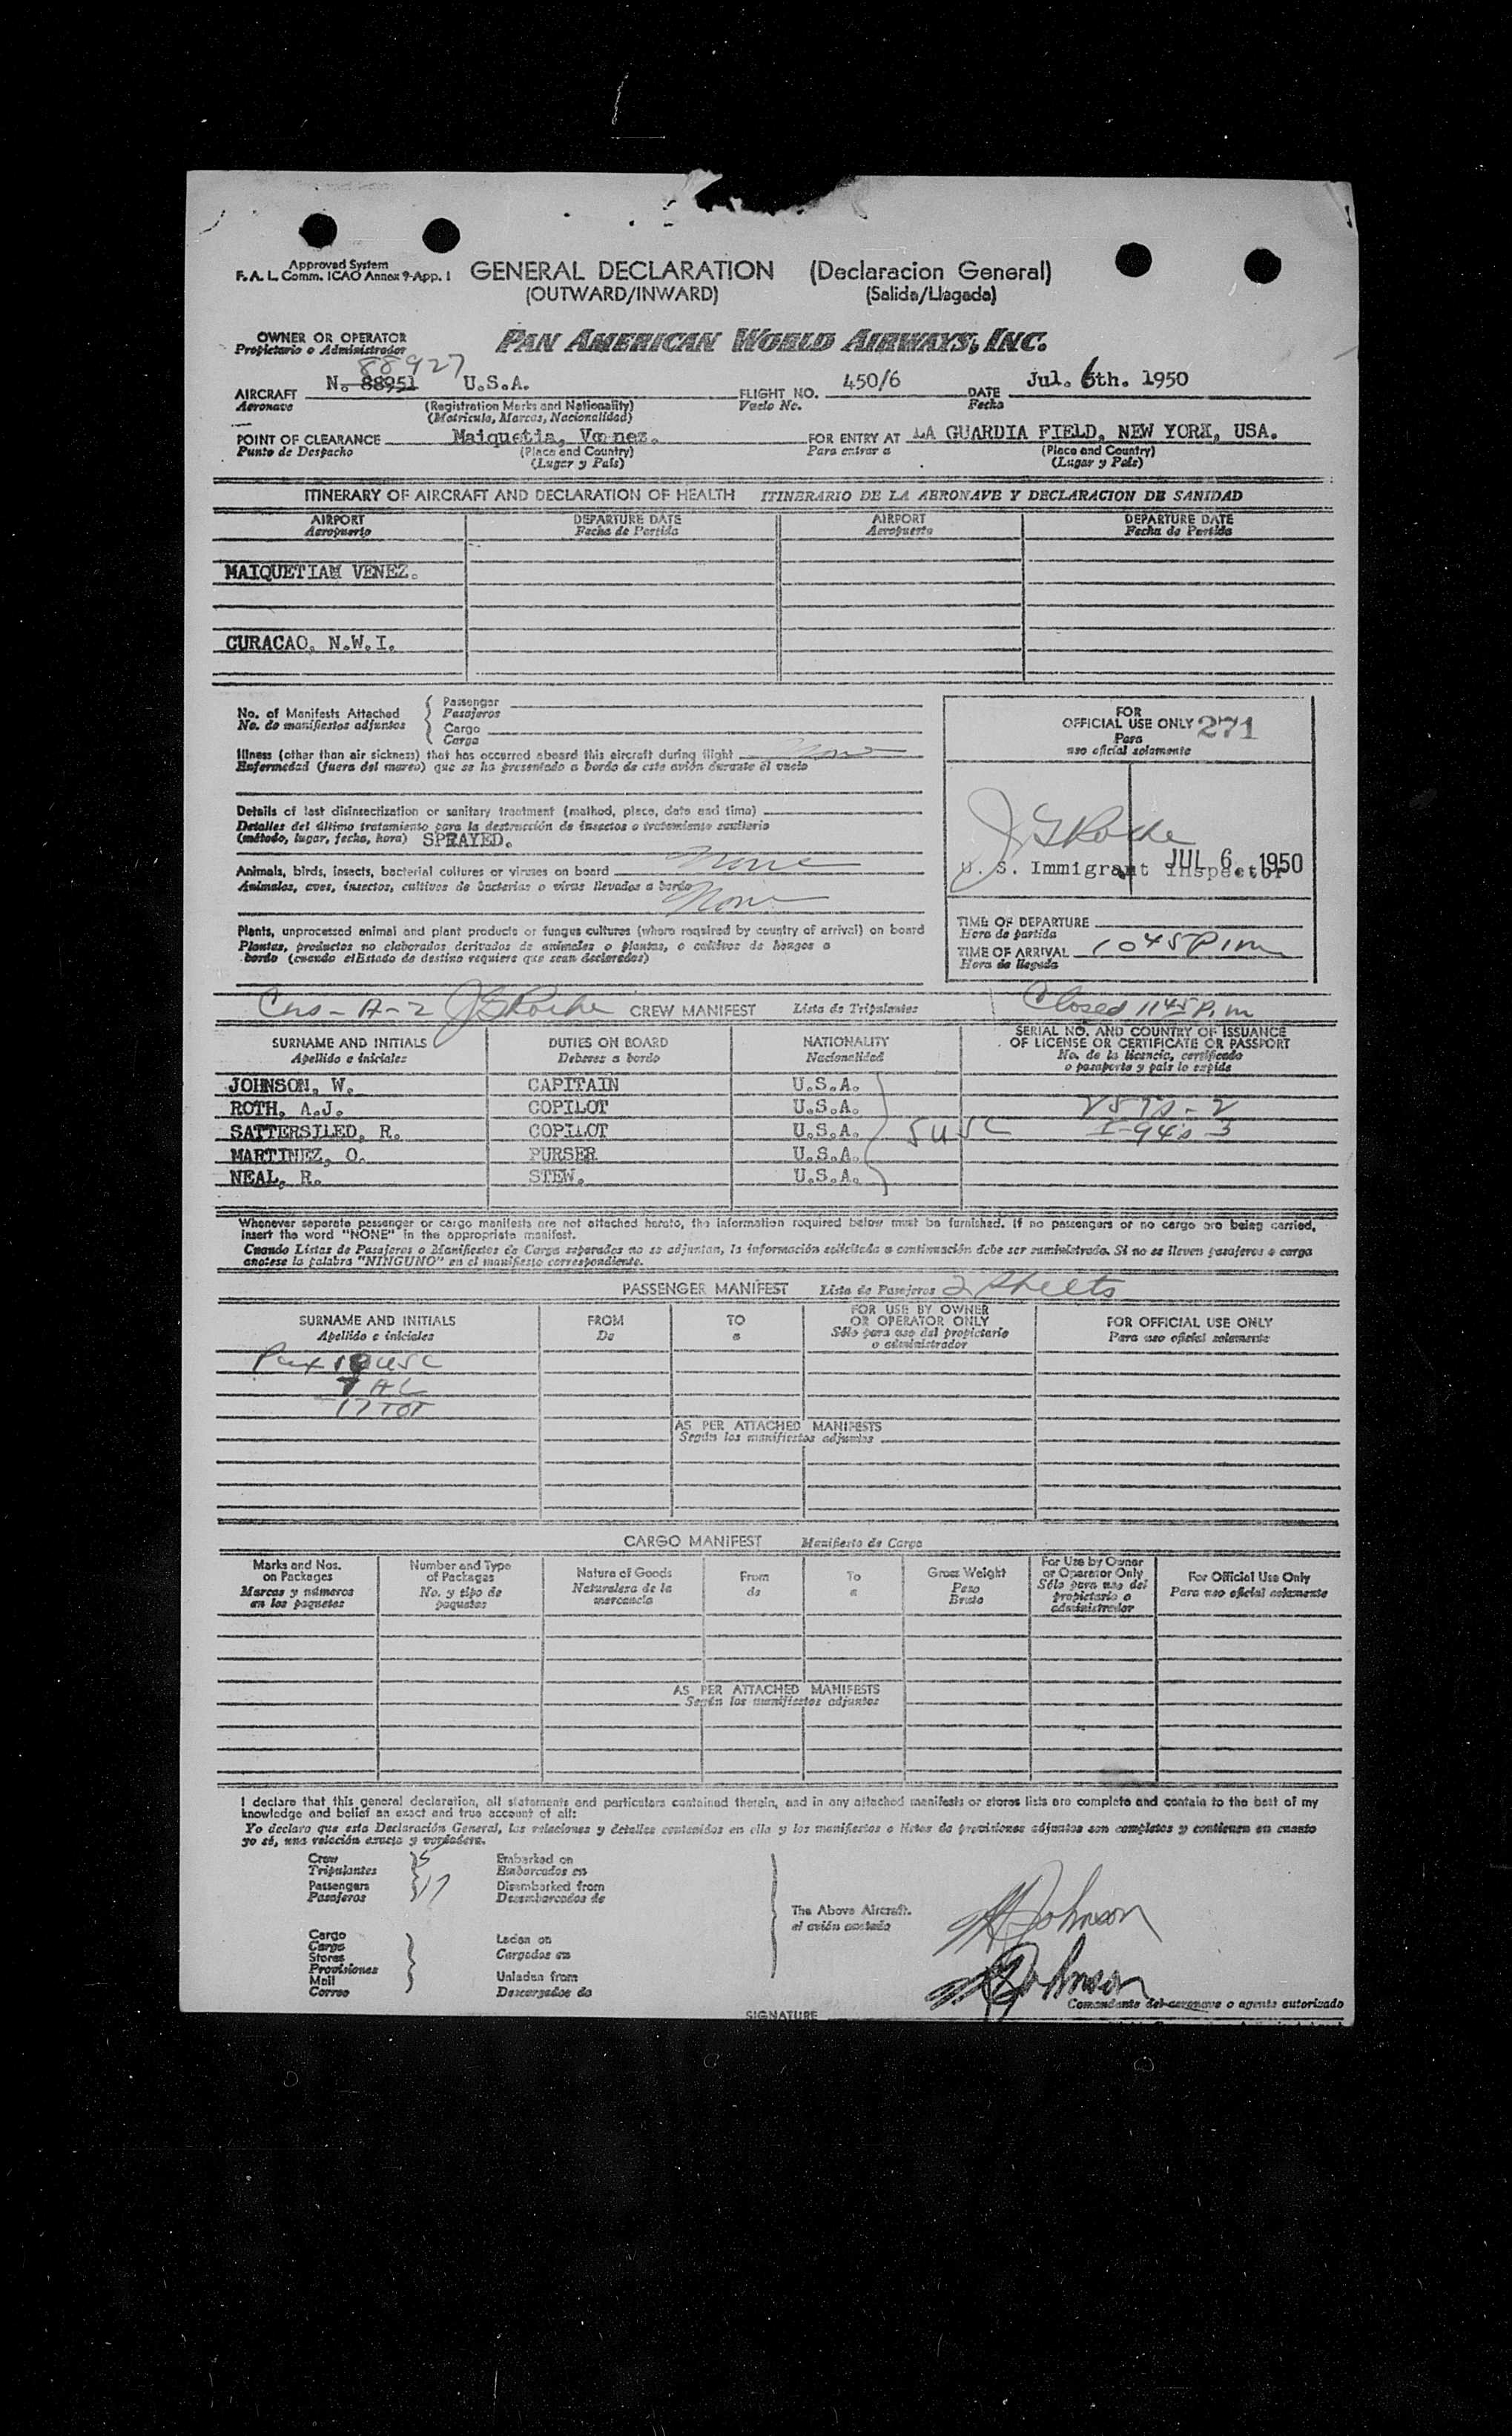 Approved System
F. A. L. Comm. ICAO Annex 9-App. 1
GENERAL DECLARATION (Declaracion General)
(OUTWARD/INWARD) (Salida/Llegada)
OWNER OR OPERATOR
Propietario o Administrador
PAN AMERICAN WORLD AIRWAYS, INC.
88927
AIRCRAFT N. 88951 U.S.A. FLIGHT NO. 450/6 DATE Jul. 6th. 1950
Aeronave (Registration Marks and Nationality) Vuelo No. Fecha
(Matricula, Marcas, Nacionalidad)
POINT OF CLEARANCE Maiquetia, Venez. FOR ENTRY AT LA GUARDIA FIELD, NEW YORK, USA.
Punto de Despacho (Place and Country) Para entrar a (Place and Country)
(Lugar y Pais) (Lugar y Pais)
ITINERARY OF AIRCRAFT AND DECLARATION OF HEALTH ITINERARIO DE LA AERONAVE Y DECLARACION DE SANIDAD
AIRPORT DEPARTURE DATE AIRPORT DEPARTURE DATE
Aeropuerto Fecha de Partida Aeropuerto Fecha de Partida
MAIQUETIAM VENEZ.
CURACAO, N.W.I.
No. of Manifests Attached
No. de manifiestos adjuntos
Passenger
Pasajeros
Cargo
Carga
Illness (other than air sickness) that has occurred aboard this aircraft during flight None
Enfermedad (fuera del mareo) que se ha presentado a bordo de este avión durante el vuelo
Details of last disinsectization or sanitary treatment (method, place, date and time)
Detalles del último tratamiento para la destrucción de insectos o tratamiento sanitario
(método, lugar, fecha, hora) SPRAYED.
Animals, birds, insects, bacterial cultures or viruses on board None
Animales, aves, insectos, cultivos de bacterias o virus llevados a bordo
None
Plants, unprocessed animal and plant products or fungus cultures (where required by country of arrival) on board
Plantas, productos no elaborados derivados de animales o plantas, o cultivos de hongos a
bordo (cuando el Estado de destino requiere que sean declarados)
FOR
OFFICIAL USE ONLY 271
Para
uso oficial solamente
J G Roche
U. S. Immigrant Inspector
JUL 6 1950
TIME OF DEPARTURE
Hora de partida
TIME OF ARRIVAL 1045 P.m
Hora de llegada
Cus - A-2 J G Roche CREW MANIFEST Lista de Tripulantes Closed 1145 P.m
SURNAME AND INITIALS DUTIES ON BOARD NATIONALITY SERIAL NO. AND COUNTRY OF ISSUANCE
OF LICENSE OR CERTIFICATE OR PASSPORT
Apellido e iniciales Deberes a bordo Nacionalidad No. de la licencia, certificado
o pasaporte y pais lo expide
JOHNSON, W. CAPITAIN U.S.A.
ROTH, A.J. COPILOT U.S.A. 257s-2
SATTERSILED, R. COPILOT U.S.A. 5 USC I-94s 3
MARTINEZ, O. PURSER U.S.A.
NEAL, R. STEW. U.S.A.
Whenever separate passenger or cargo manifests are not attached hereto, the information required below must be furnished. If no passengers or no cargo are being carried,
insert the word "NONE" in the appropriate manifest.
Cuando Listas de Pasajeros o Manifiestos de Carga separados no se adjuntan, la información solicitada a continuación debe ser suministrada. Si no se lleven pasajeros o carga
anotese la palabra "NINGUNO" en el manifiesto correspondiente.
PASSENGER MANIFEST Lista de Pasajeros 2 sheets
SURNAME AND INITIALS FROM TO FOR USE BY OWNER
OR OPERATOR ONLY FOR OFFICIAL USE ONLY
Apellido e iniciales De a Sólo para uso del propietario
o administrador Para uso oficial solamente
Pax 10 USC
7 AL
17 TOT
AS PER ATTACHED MANIFESTS
Según los manifiestos adjuntos
CARGO MANIFEST Manifiesto de Carga
Marks and Nos.
on Packages
Marcas y números
en los paquetes
Number and Type
of Packages
No. y tipo de
paquetes
Nature of Goods
Naturaleza de la
mercancia
From
de
To
a
Gross Weight
Peso
Bruto
For Use by Owner
or Operator Only
Sólo para uso del
propietario o
administrador
For Official Use Only
Para uso oficial solamente
AS PER ATTACHED MANIFESTS
Según los manifiestos adjuntos
I declare that this general declaration, all statements and particulars contained therein, and in any attached manifests or stores lists are complete and contain to the best of my
knowledge and belief an exact and true account of all:
Yo declaro que esta Declaración General, las relaciones y detalles contenidos en ella y los manifiestos o listas de provisiones adjuntos son completos y contienen en cuanto
yo sé, una relación exacta y verdadera.
Crew 5 Embarked on
Tripulantes Embarcados en
Passengers 17 Disembarked from
Pasajeros Desembarcados de
The Above Aircraft.
el avión anotado
Cargo
Carga
Stores
Provisiones
Mail
Correo
Laden on
Cargados en
Unladen from
Descargados de
W Johnson
W Johnson
Comandante del aeronave o agente autorizado
SIGNATURE